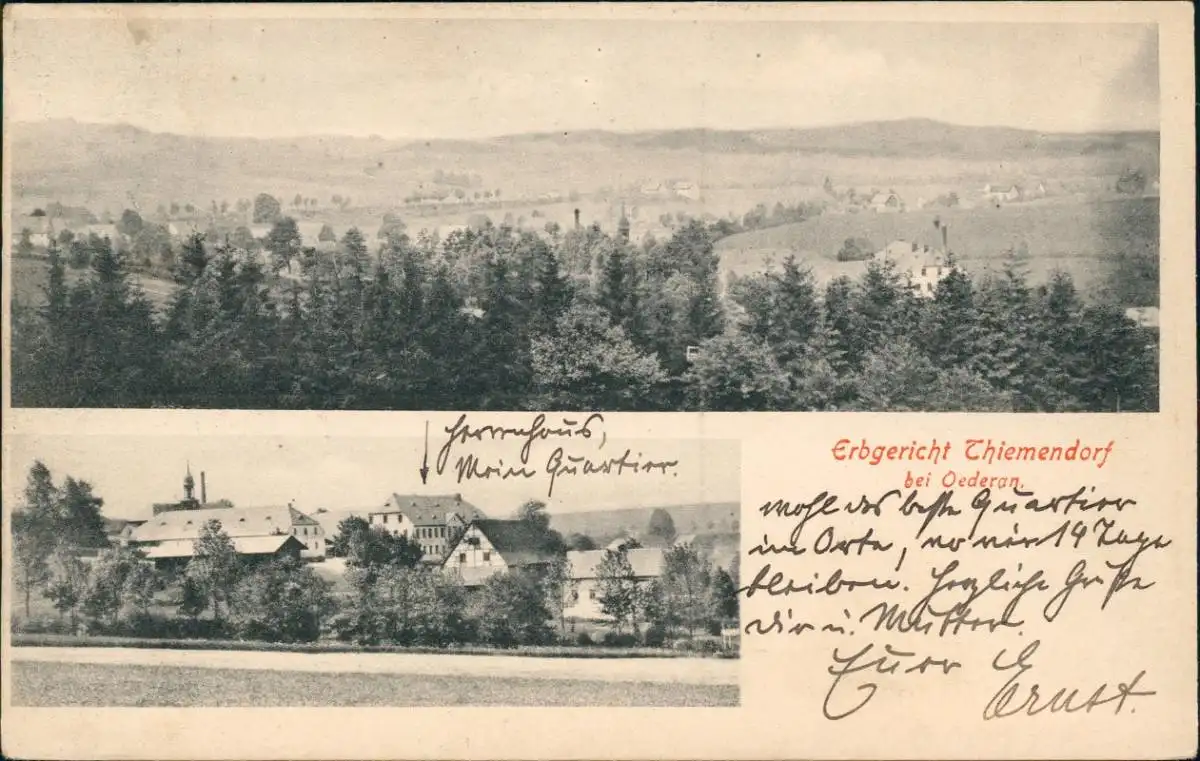 Herrenhaus,
Mein Quartier.
Erbgericht Thiemendorf
bei Oederan.
wohl das beste Quartier
im Orte, wo wir 14 Tage
bleiben. Herzliche Grüße
Dir u. Mutter.
Euer
Ernst.